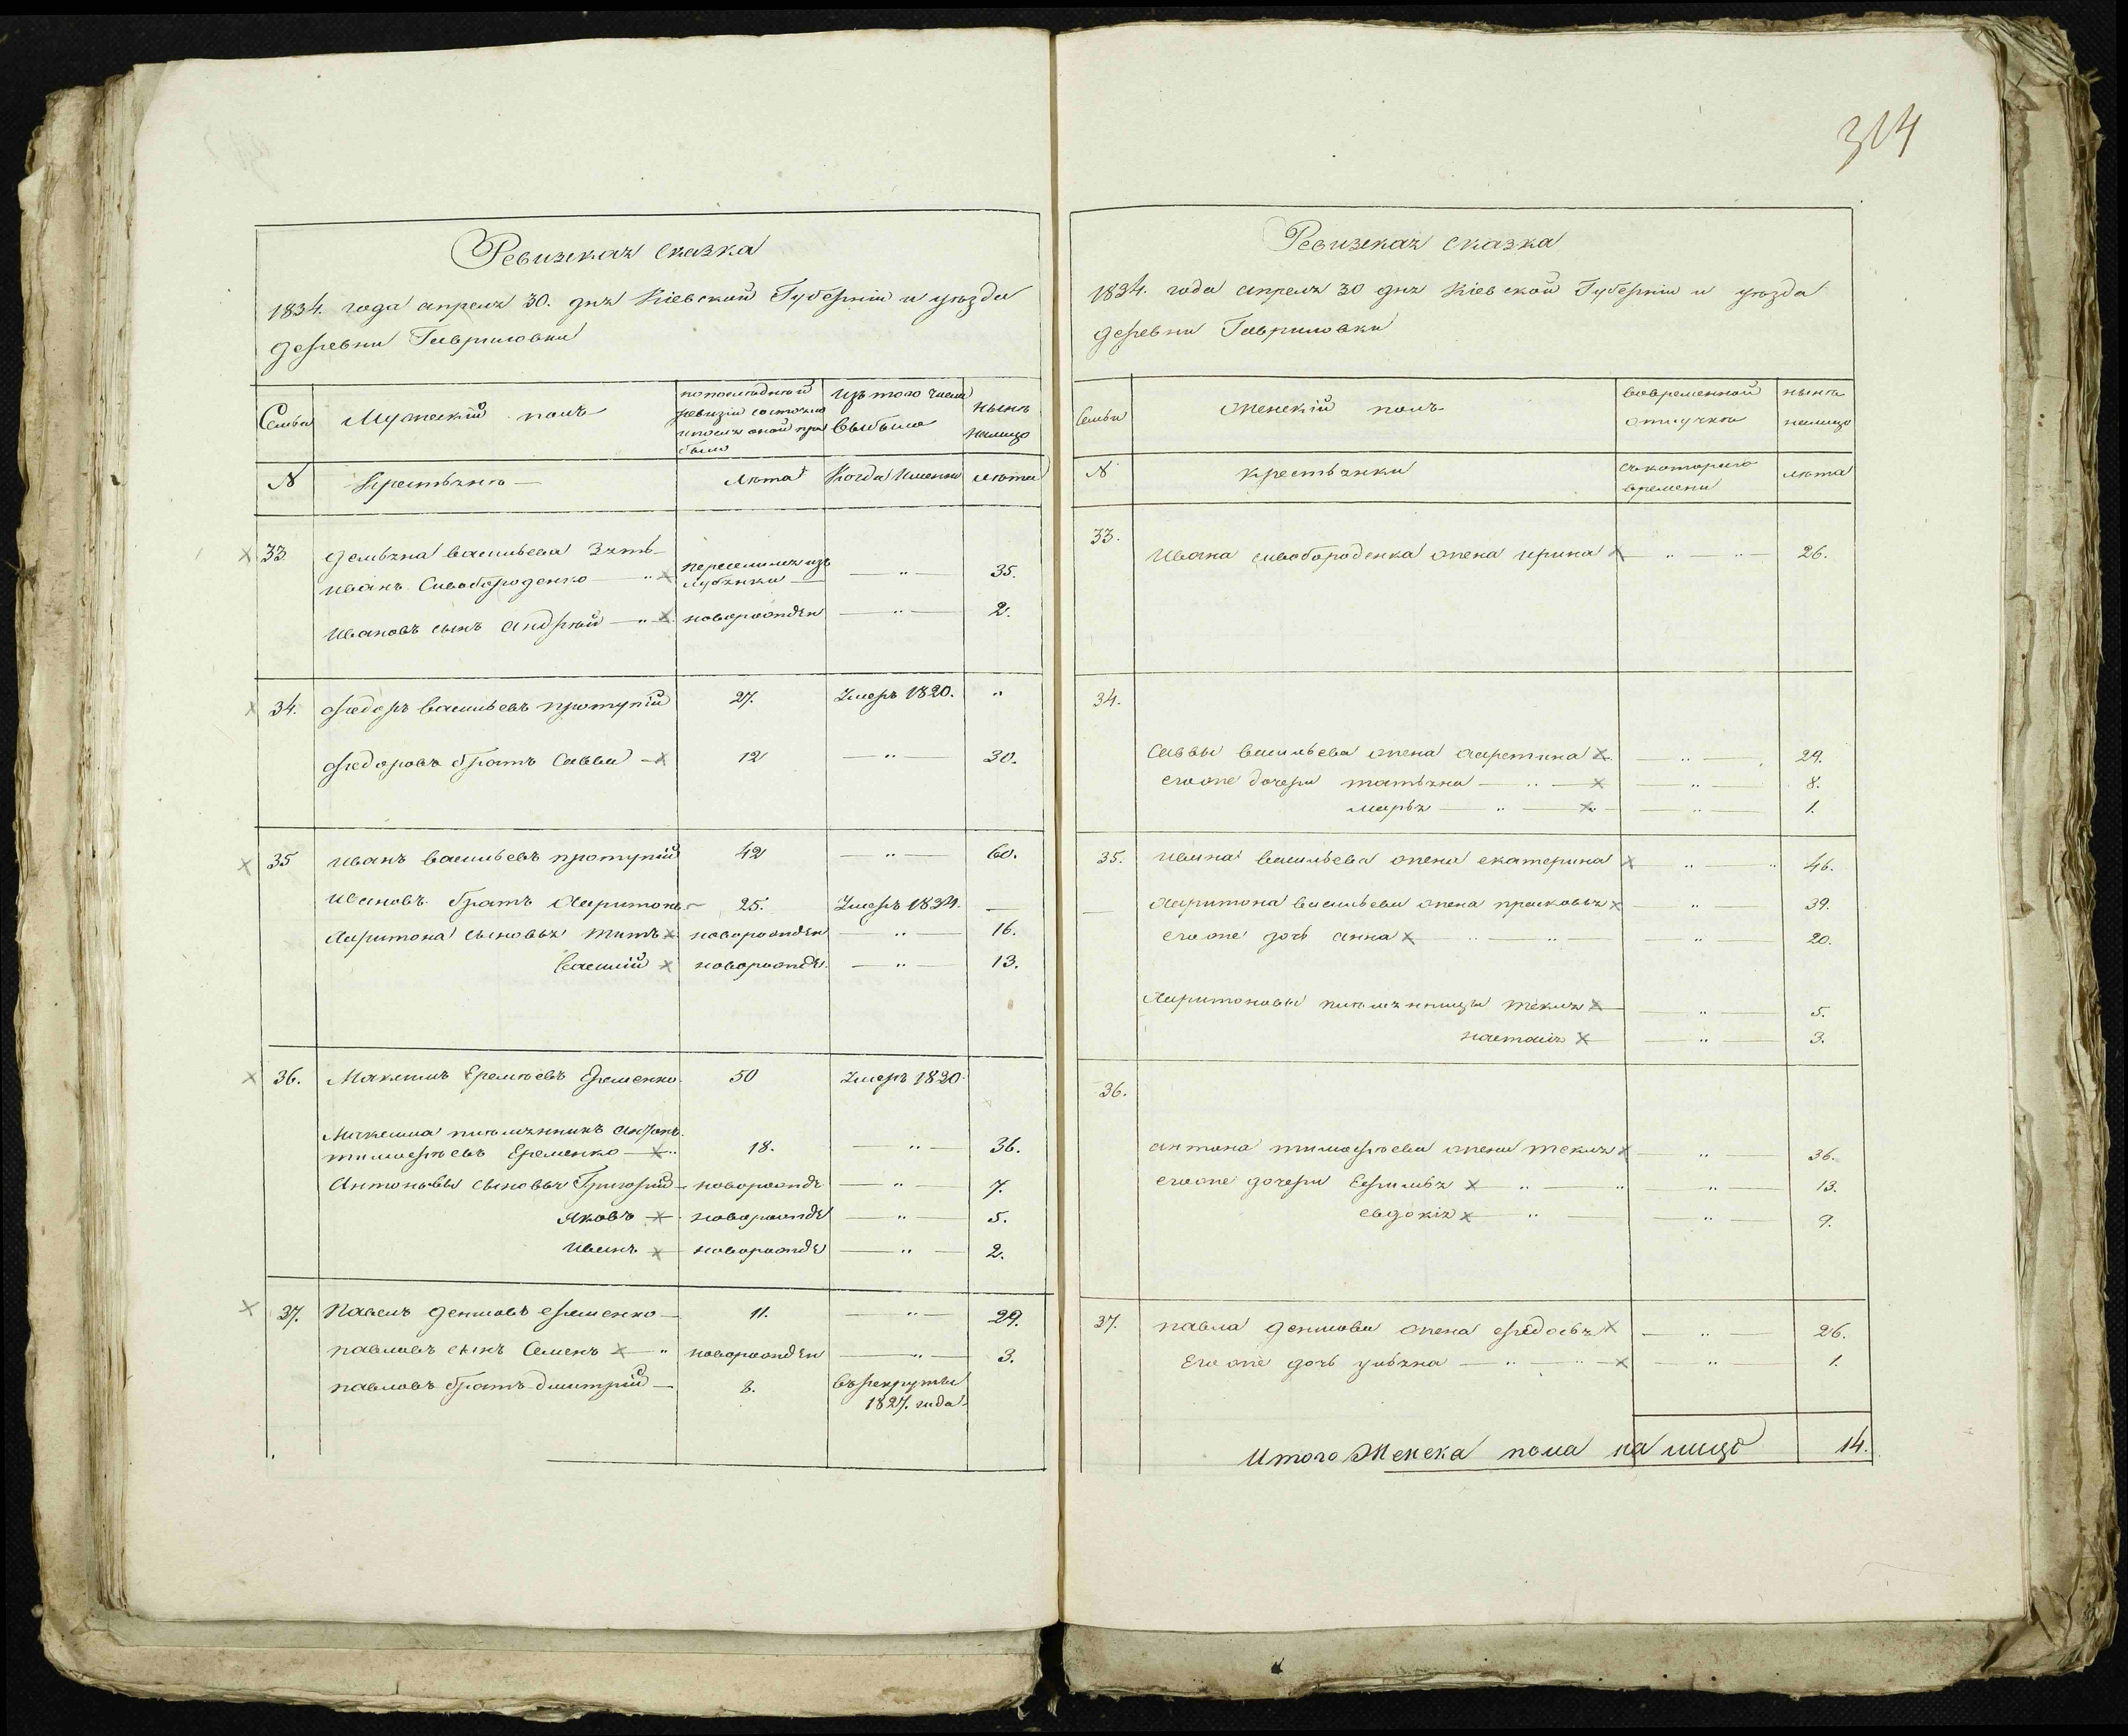 314
Ревизская сказка
1834. года апреля 30. дня Кіевской Губерніи и уезда
деревни Гавриловки
Семьи
Мужескій полъ
попоследней
ревизіи состояло
и после оной при
было
Изъ того числа
выбыло
ныне
налицо
N
Крестьяне
лета
Когда Именно
лета
33
Демьяна васильева Зять
иванъ Сивобороденко
переселился изъ
35.
Ивановъ сынъ андрей
новорожден
2.
34.
Федоръ васильевъ протупій
27.
Умеръ 1820.
Федоровъ братъ Савва
12
30.
35
иванъ васильевъ протупій
42
60.
ивановъ братъ Харитонъ
25.
Умеръ 1824.
Харитона сыновья титъ
новорожден
16.
василій
новорожде
13.
36.
Максимъ Еремеевъ Еременко
50
Умеръ 1820
Максима племянникъ Антонъ
тимофеевъ Еременко
18.
36.
Антоновы сыновья Григорій
новорожде
7.
Яковъ
новорожде
5.
иванъ
новорожде
2.
37.
Павелъ денисовъ еременко
11.
29.
павловъ сынъ Семенъ
новорожден
3.
павловъ братъ дмитрій
8.
въ рекруты
1827. года
Ревизская сказка
1834. года апреля 30 дня Кіевской Губерніи и уезда
деревни Гавриловки
Семьи
женскій полъ
вовременной
отлучке
ныне
налицо
N
крестьянки
съ котораго
времени
лета
33.
Ивана сивобороденка жена ирина
26.
34.
Саввы васильева жена харетина
29.
егоже дочери татьяна
8.
марья
1.
35.
ивана васильева жена екатерина
46.
Харитона васильева жена прасковья
39.
егоже дочь анна
20.
Харитоновы племянницы текля
5.
настасія
3.
36.
антона тимофеева жена текля
36.
егоже дочери Ефимья
13.
евдокія
9.
37.
павла денисова жена федосья
26.
Егоже дочь ульяна
1.
Итого Женска пола на лицо
14.